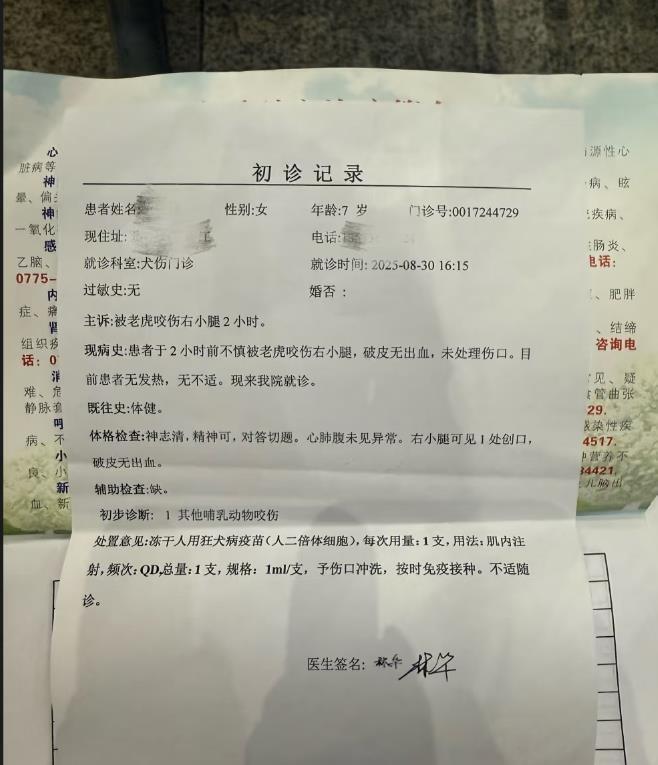 初诊记录
患者姓名: 性别:女 年龄:7 岁 门诊号:0017244729
现住址: 电话:
就诊科室:犬伤门诊 就诊时间: 2025-08-30 16:15
过敏史:无 婚否：
主诉:被老虎咬伤右小腿 2 小时。
现病史:患者于 2 小时前不慎被老虎咬伤右小腿，破皮无出血，未处理伤口。目
前患者无发热，无不适。现来我院就诊。
既往史:体健。
体格检查:神志清，精神可，对答切题。心肺腹未见异常。右小腿可见 1 处创口，
破皮无出血。
辅助检查:缺。
初步诊断: 1 其他哺乳动物咬伤
处置意见:冻干人用狂犬病疫苗（人二倍体细胞），每次用量：1 支，用法：肌内注
射，频次：QD,总量：1 支，规格：1ml/支，予伤口冲洗，按时免疫接种。不适随
诊。
医生签名: 林华
心
脏病等
神
晕、偏
神
一氧化
感
乙脑、
0775-
内
症、痛
肾
组织疾
话：0
消
难、危
静脉
呼
病、不
小
良、小
新
血、新
源性心
病、眩
疾病、
肠炎、
电话:
、肥胖
、结缔
咨询电
常见、疑
管曲张
29.
感染性疾
4517.
营养不
34421.